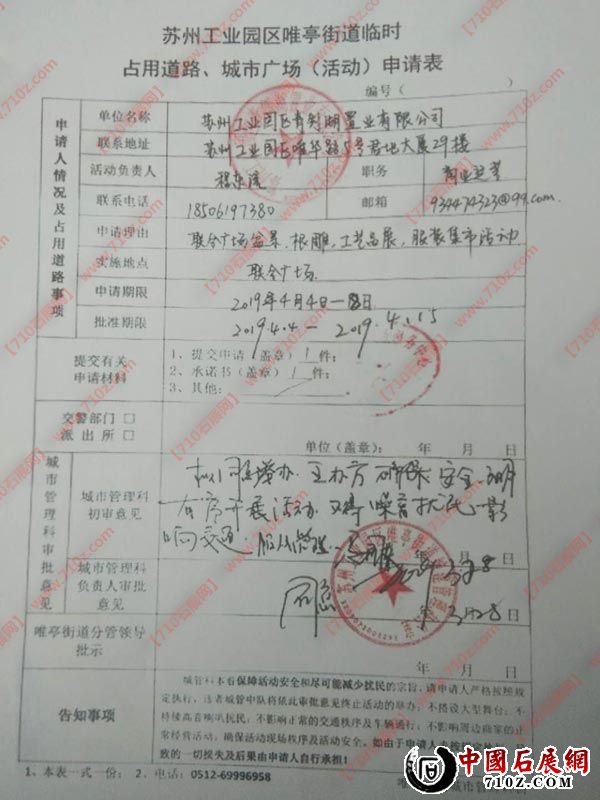 苏州工业园区唯亭街道临时
占用道路、城市广场（活动）申请表
编号（ ）
申请人情况及占用道路事项
单位名称 苏州工业园区青剑湖置业有限公司
联系地址 苏州工业园区唯华路5号君地大厦29楼
活动负责人 程东 职务
联系电话 18506197380 邮箱 934474323@99.com
申请理由 联合广场盆景、根雕、工艺品展、服装集市活动
实施地点 联合广场
申请期限 2019年4月4日—8日
批准期限 2019.4.4 — 2019.4.15
提交有关
申请材料
1、提交申请（盖章）1件；
2、承诺书（盖章）1件；
3、其他：
交警部门 □
派出所 □
单位（盖章）： 年 月 日
城市管理科审批意见
城市管理科
初审意见
拟同意举办，主办方确保安全、文明
有序开展活动，不得噪音扰民、影
响交通，服从管理。
年 月 日
城市管理科
负责人审批
意见
同意
3月28日
唯亭街道分管领导
批示
年 月 日
告知事项
城管科本着保障活动安全和尽可能减少扰民的宗旨，请申请人严格按照规
定执行，违者城管中队将依此审批意见终止活动的举办；不搭设大型舞台；不
持续高音喇叭扰民；不影响正常的交通秩序及车辆通行；不影响周边商家的正
常经营活动，确保活动现场秩序及活动安全，如由于申请人
致的一切损失及后果由申请人自行承担！
1、本表一式一份； 2、电话：0512-69996958
唯亭街道城市管
【710石展网】www.710z.com
中国石展网
710Z.COM